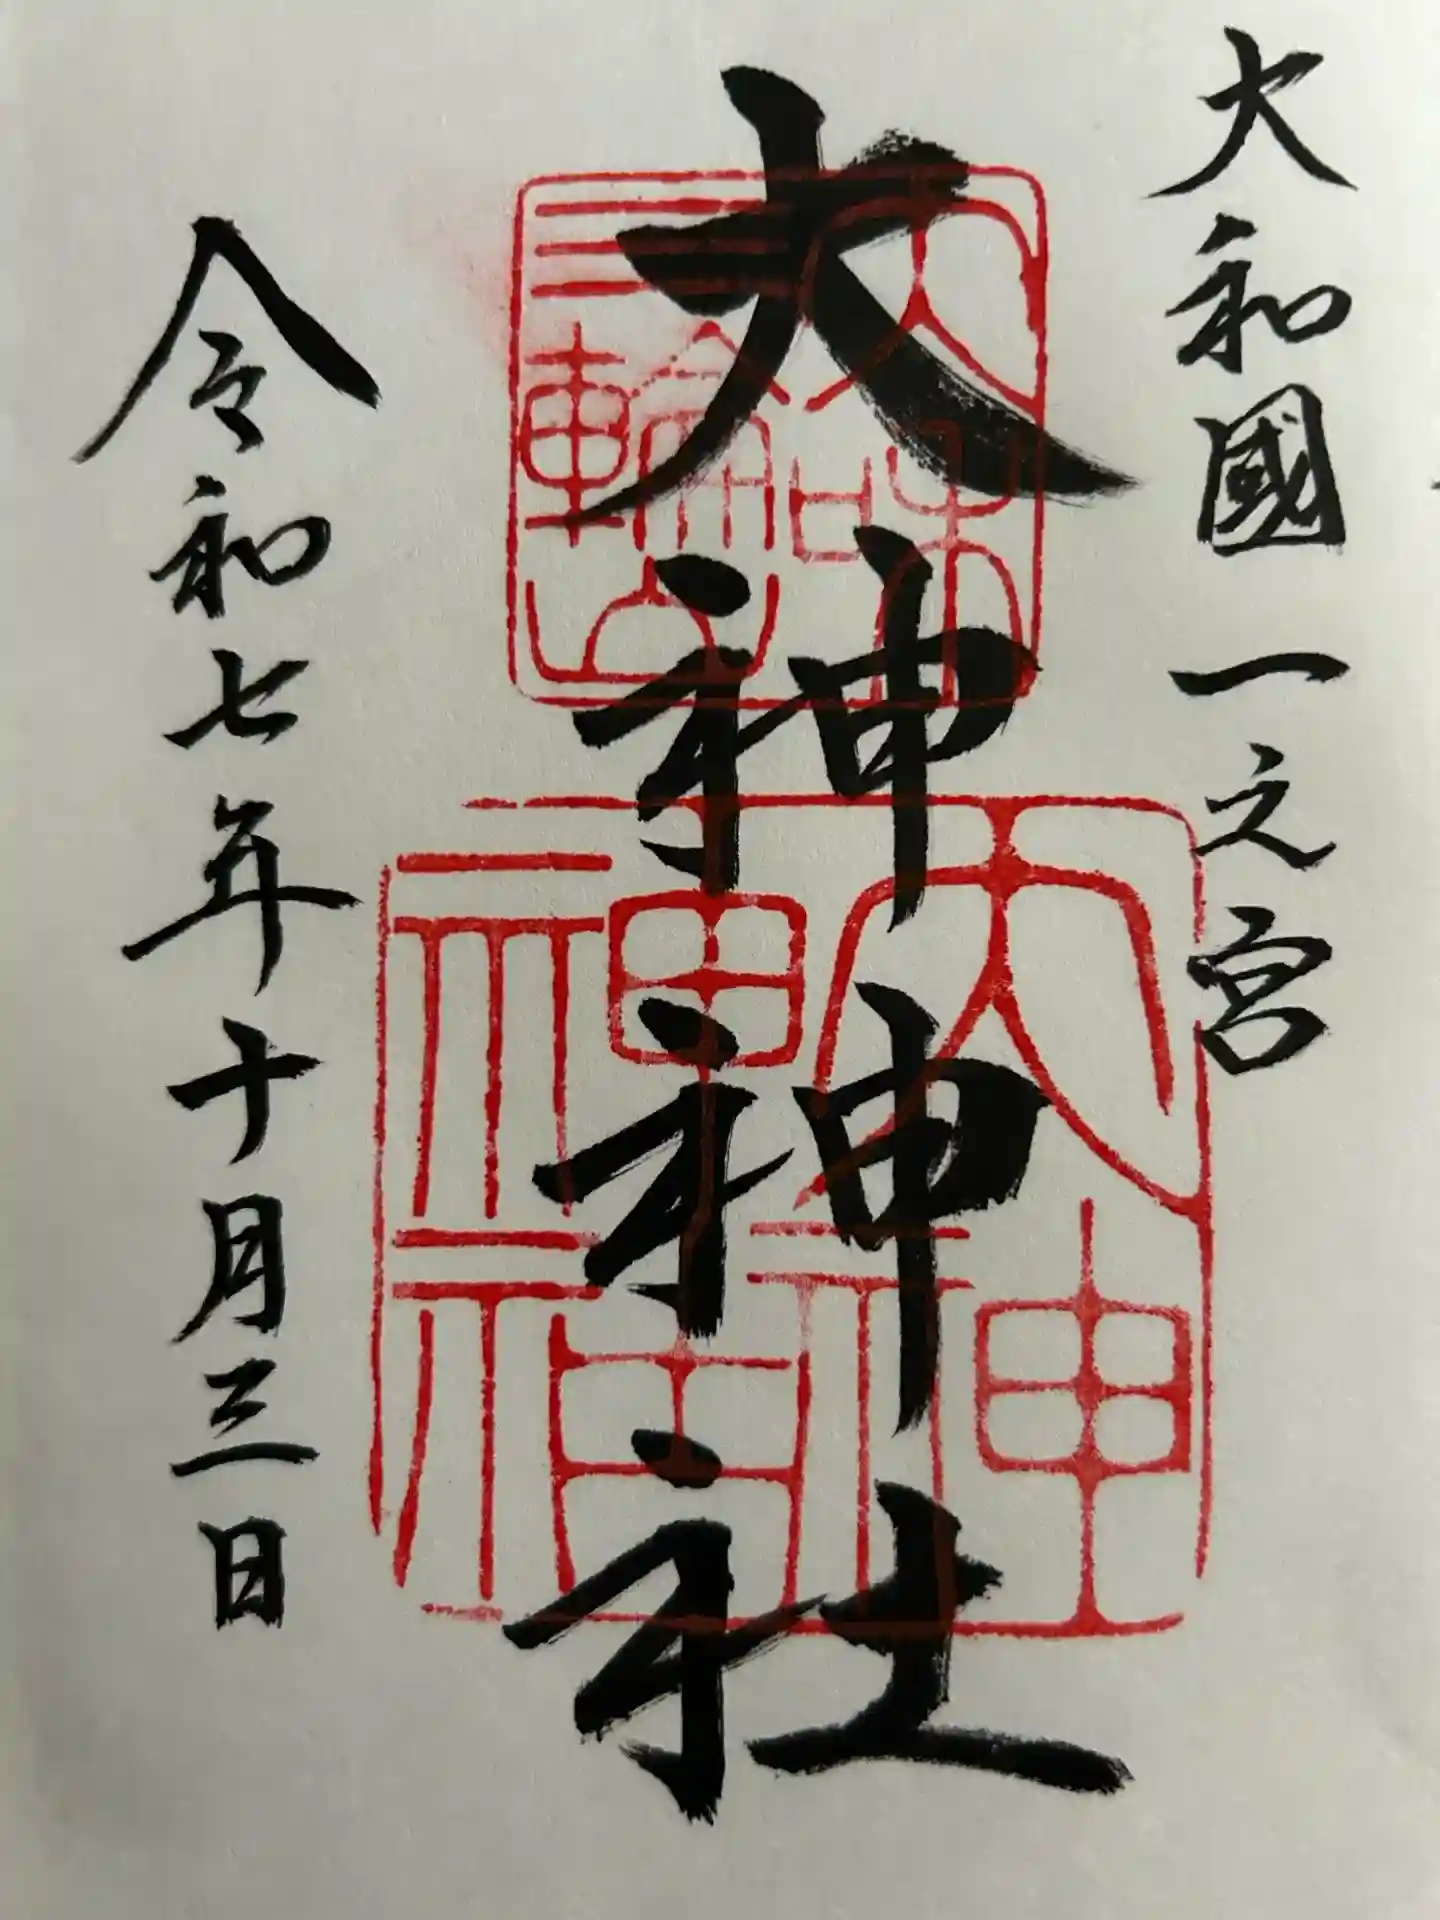 大和國一之宮
大神神社
令和七年十月三日
大和
三輪山